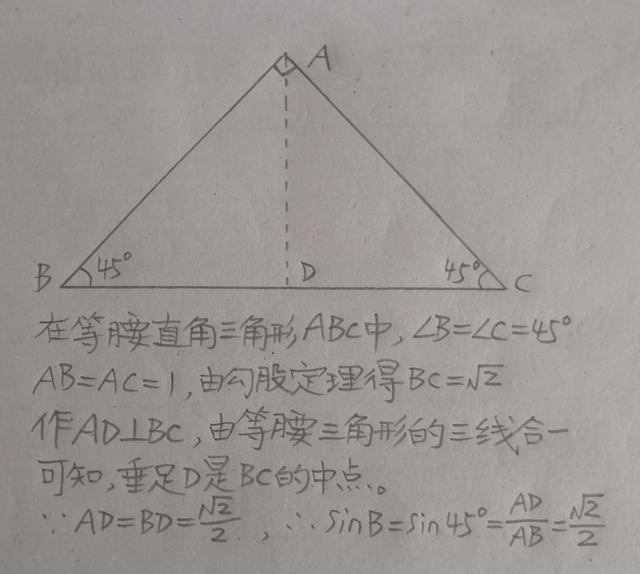 A
B 45° D 45° C
在等腰直角三角形ABC中,∠B=∠C=45°
AB=AC=1,由勾股定理得BC=√2
作AD⊥BC,由等腰三角形的三线合一
可知,垂足D是BC的中点。
∵AD=BD=√2/2,∴sinB=sin45°=AD/AB=√2/2